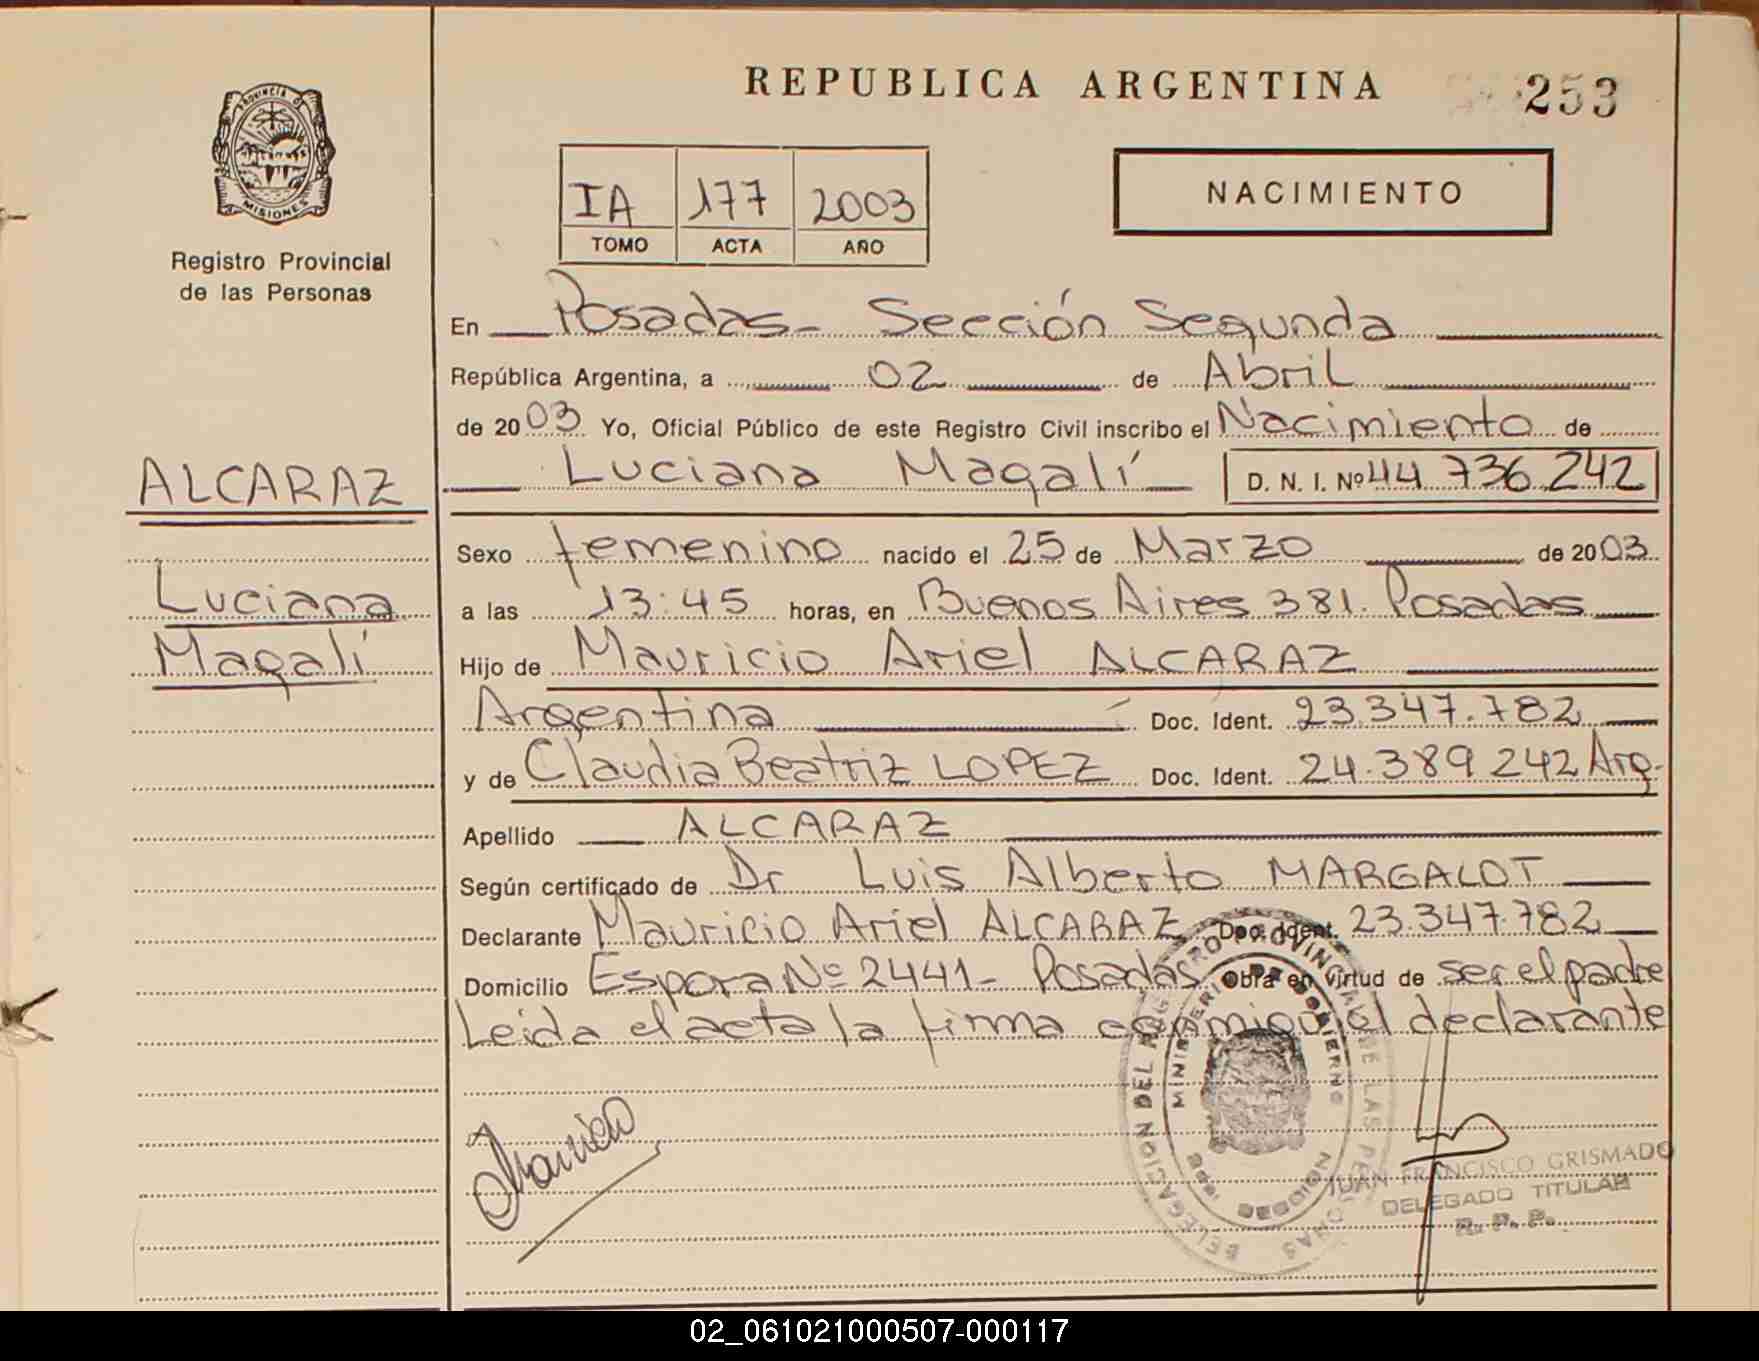 REPUBLICA ARGENTINA
253
PROVINCIA DE
MISIONES
Registro Provincial
de las Personas
IA 177 2003
TOMO ACTA AÑO
NACIMIENTO
En Posadas- Sección Segunda
República Argentina, a 02 de Abril
de 2003 Yo, Oficial Público de este Registro Civil inscribo el Nacimiento de
Luciana Magalí D. N. I. Nº 44 736.242
ALCARAZ
Luciana
Magalí
Sexo femenino nacido el 25 de Marzo de 2003
a las 13:45 horas, en Buenos Aires 381. Posadas
Hijo de Mauricio Ariel ALCARAZ
Argentina Doc. Ident. 23.347.782
y de Claudia Beatriz LOPEZ Doc. Ident. 24.389.242 Arg.
Apellido ALCARAZ
Según certificado de Dr Luis Alberto MARGALOT
Declarante Mauricio Ariel ALCARAZ Doc. Ident. 23.347.782
Domicilio Espora Nº 2441- Posadas Obra en virtud de ser el padre
Leída el acta la firma conmigo el declarante
DELEGACION DEL REGISTRO PROVINCIAL DE LAS PERSONAS
MINISTERIO DE GOBIERNO
JUAN FRANCISCO GRISMADO
DELEGADO TITULAR
R. P. P.
02_061021000507-000117